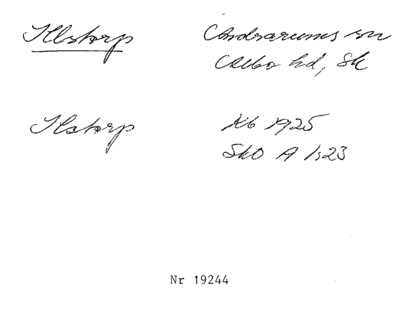 Illstorp Andrarums sn
Albo hd, Sk
Ilstorp Kb 1925
SkO A 1:23
Nr 19244